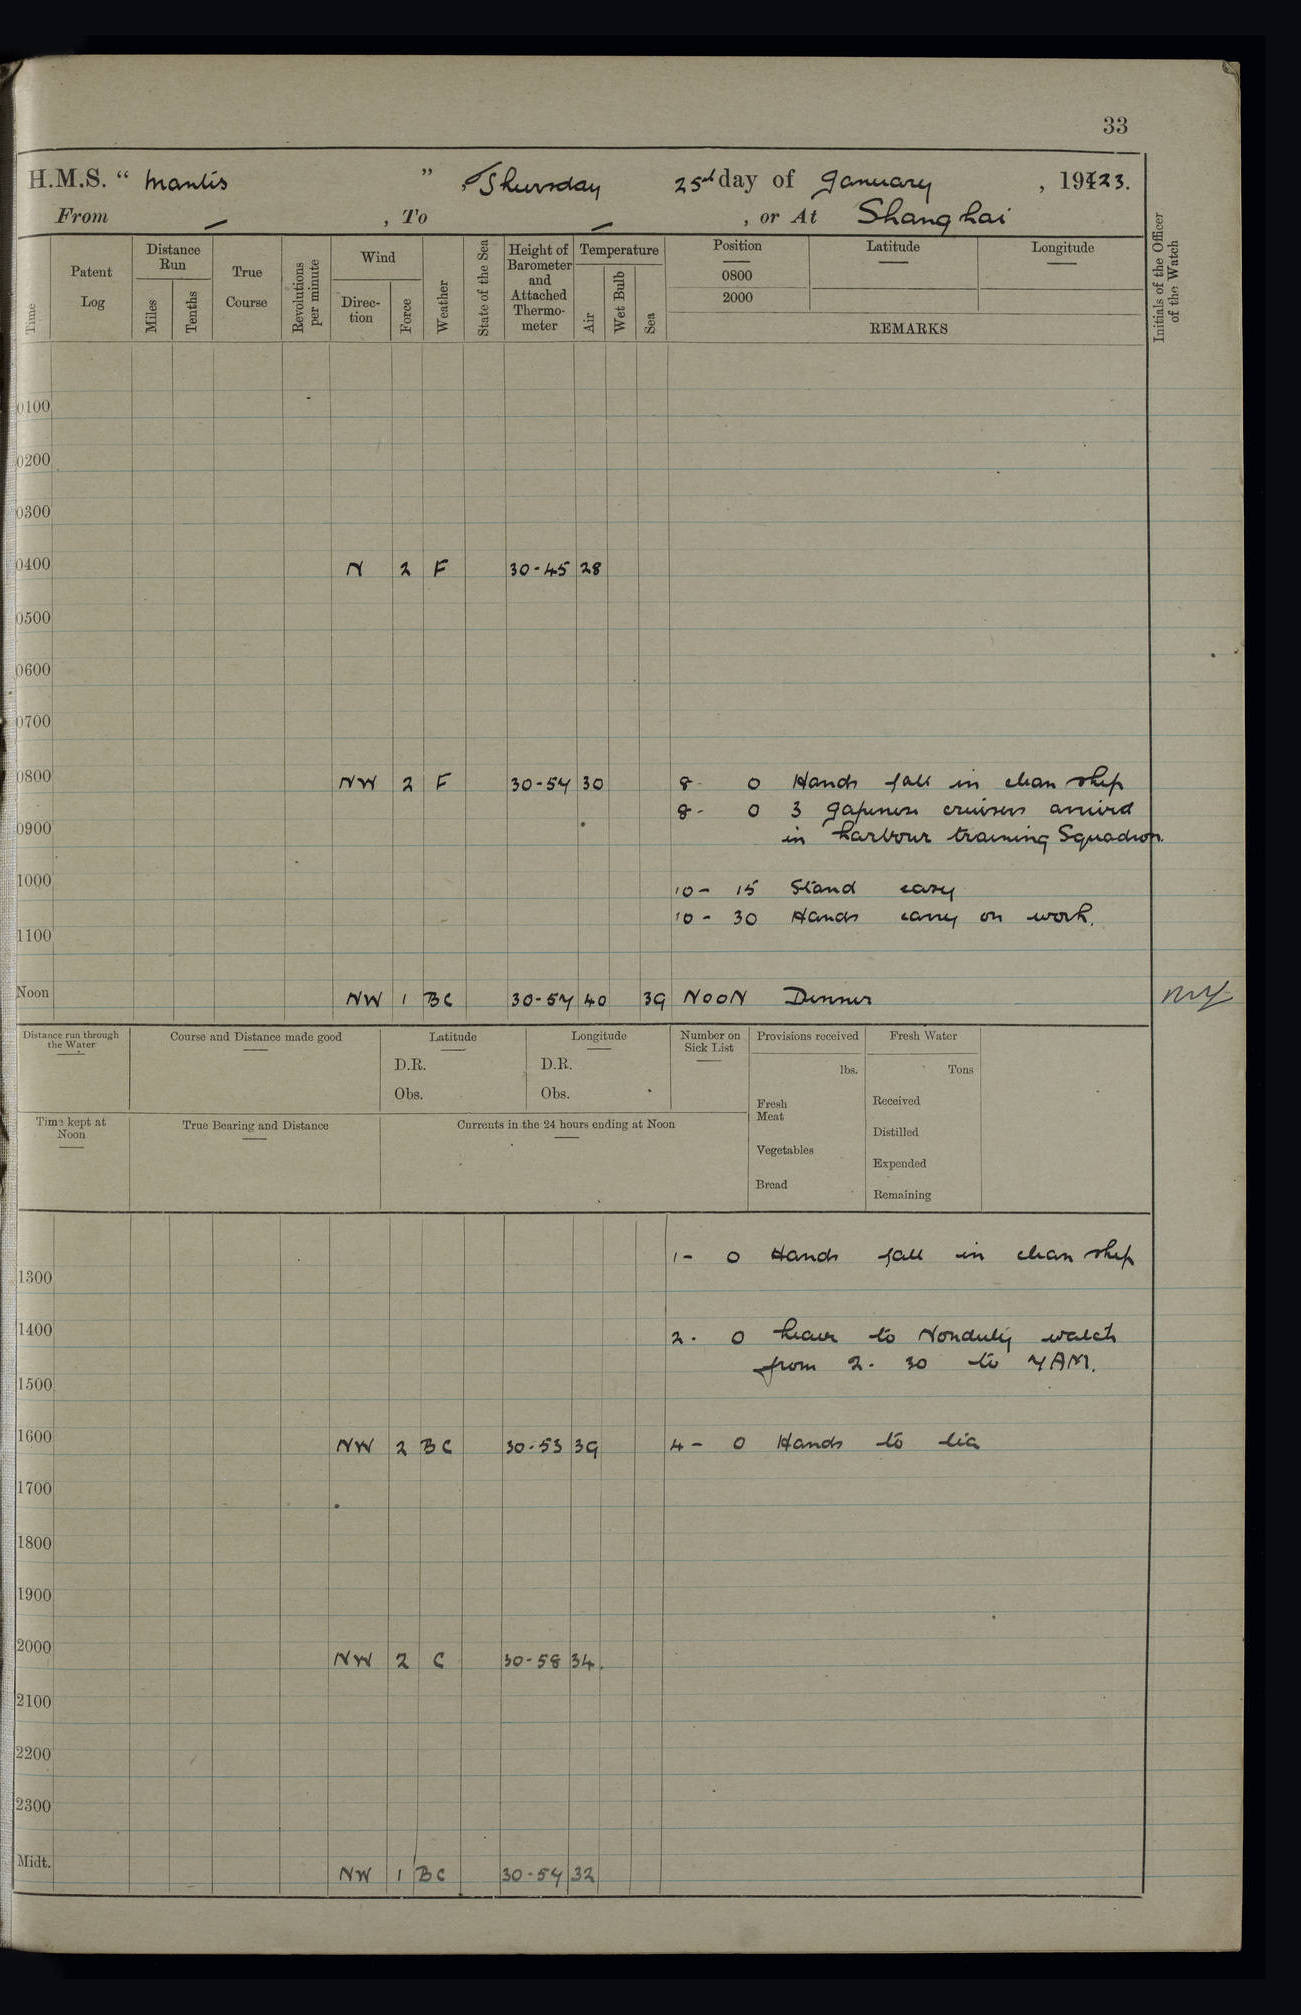 33
H.M.S. "Mantis", Thursday 25th day of January, 1923.
From –, To –, or At Shanghai
Time
Patent Log
Distance Run
Miles
Tenths
True Course
Revolutions per minute
Wind
Direction
Force
Weather
State of the Sea
Height of Barometer and Attached Thermometer
Temperature
Air
Wet Bulb
Sea
Position
0800
2000
Latitude
Longitude
REMARKS
Initials of the Officer of the Watch
0100
0200
0300
0400 N 2 F 30-45 28
0500
0600
0700
0800 NW 2 F 30-54 30 8- 0 Hands fall in clean ship
8- 0 3 Japenese cruisers arrived
0900 in harbour training Squadron.
1000 10- 15 Stand easy
10- 30 Hands carry on work.
1100
Noon NW 1 BC 30-54 40 39 NOON Dinner
Distance run through the Water
Course and Distance made good
Latitude
D.R.
Obs.
Longitude
D.R.
Obs.
Number on Sick List
Provisions received
lbs.
Fresh Meat
Vegetables
Bread
Fresh Water
Tons
Received
Distilled
Expended
Remaining
Time kept at Noon
True Bearing and Distance
Currents in the 24 hours ending at Noon
1- 0 Hands fall in clean ship
1300
1400 2. 0 leave to Nonduty watch
from 2. 30 to 7AM.
1500
1600 NW 2 BC 30-53 39 4- 0 Hands to tea
1700
1800
1900
2000 NW 2 C 30-58 34.
2100
2200
2300
Midt. NW 1 BC 30-54 32